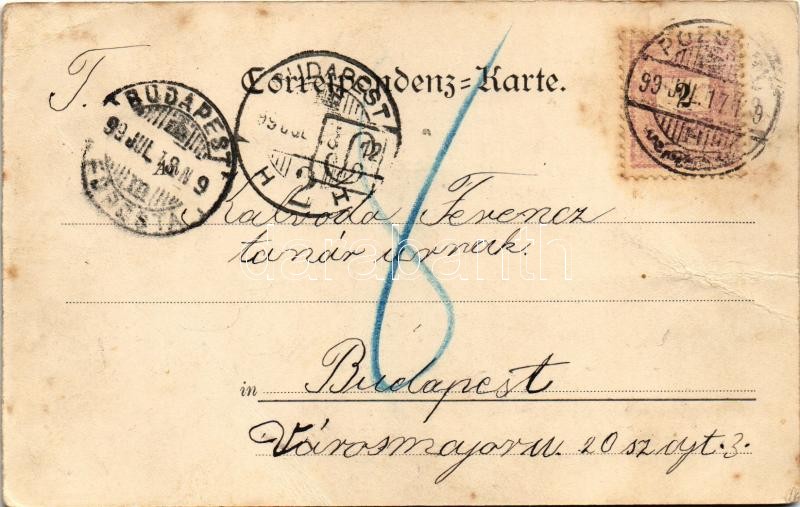 T.
Correspondenz-Karte.
BUDAPEST
99 JUL. 18. N 9
BUDAPEST
99 JUL
12
H 7 H
POZS
99 JUL. 17
2
8
Kalvoda Ferencz
tanár úrnak.
darabanth
in Budapest
Városmajor u. 20 sz. ajt. 3.